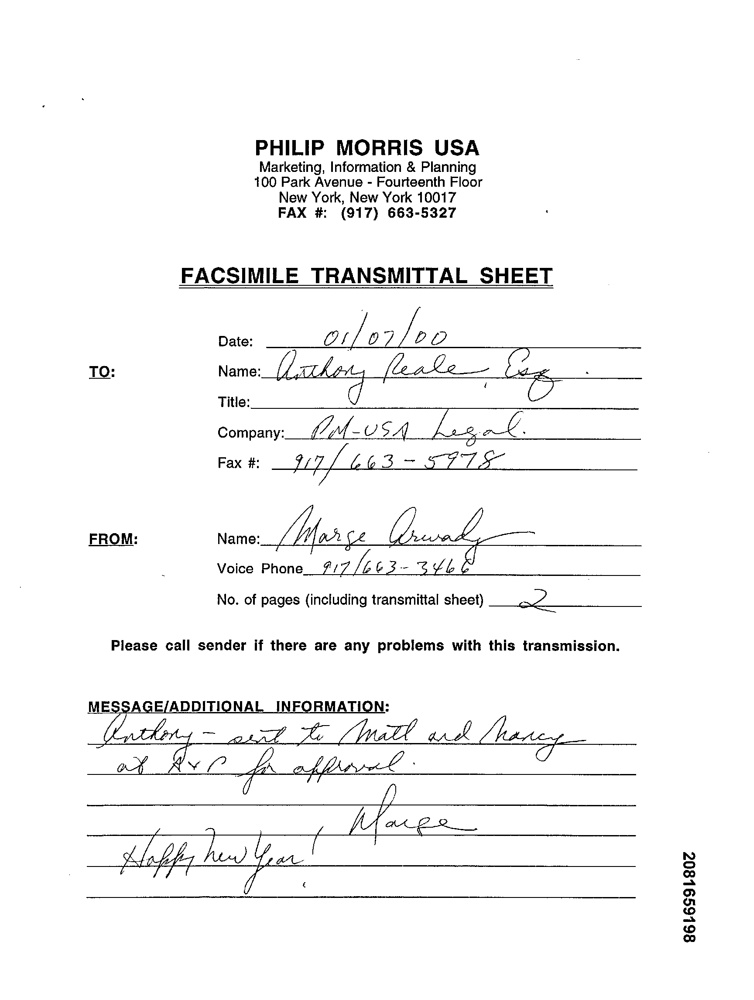 PHILIP MORRIS USA
Marketing, Information & Planning
100 Park Avenue - Fourteenth Floor
New York, New York 10017
FAX #: (917) 663-5327
FACSIMILE TRANSMITTAL SHEET
Date: 01/07/00
TO: Name: Anthony Reale, Esq
Title:
Company: PM-USA Legal.
Fax #: 917/663-5978
FROM: Name: Marge Arwady
Voice Phone 917/663-3466
No. of pages (including transmittal sheet) 2
Please call sender if there are any problems with this transmission.
MESSAGE/ADDITIONAL INFORMATION:
Anthony - sent to Matt and Nancy
at for approval.
Marge
Happy New Year!
2081659198